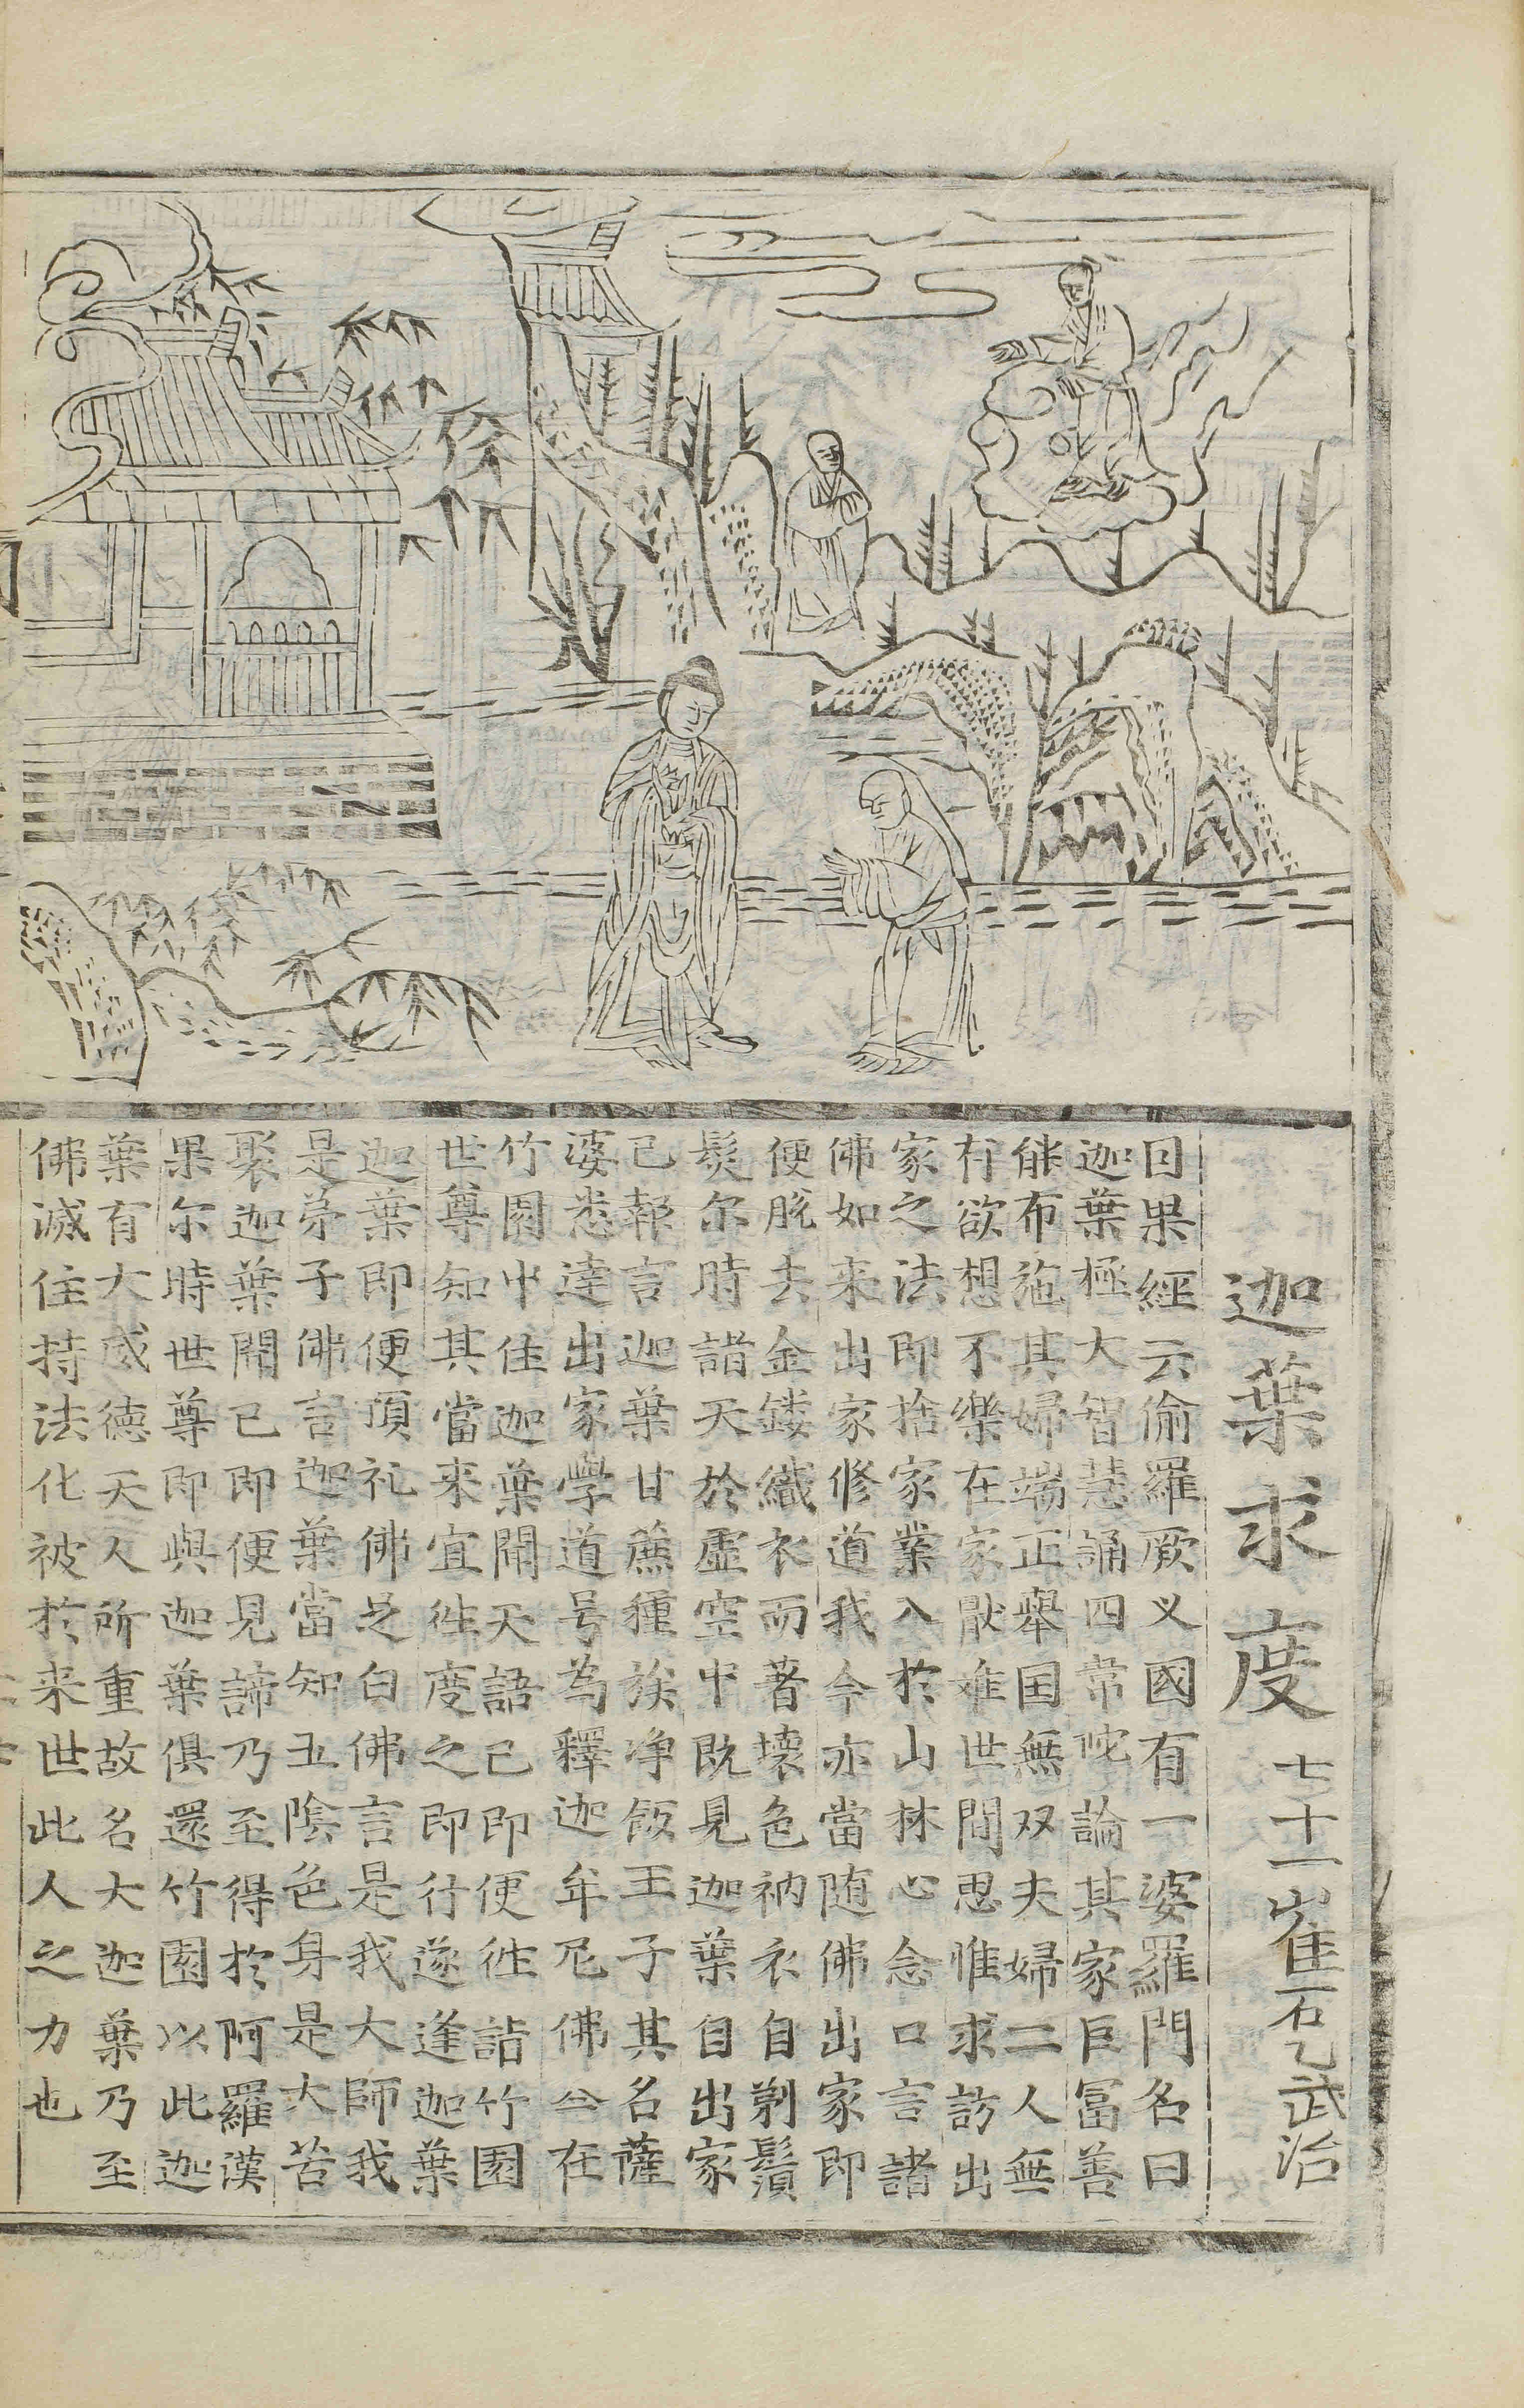 迦葉求度 七十一 崔石乙武治
因果經云偷羅厥义國有一婆羅門名曰
迦葉極大智慧誦四常陀論其家巨冨善
能布施其婦端正舉国無双夫婦二人無
有欲想不樂在家猒難世間思惟求訪出
家之法即捨家業入於山林心念口言諸
佛如来出家修道我今亦當随佛出家即
便脫去金鏤織衣而著壊色衲衣自剃鬚
髮尔時諸天於虛空中既見迦葉自出家
已報言迦葉甘蔗種族净飯王子其名薩
婆悉達出家學道号為釋迦牟尼佛今在
竹園中住迦葉聞天語已即便徃詣竹園
世尊知其當来宜徃度之即行遂逢迦葉
迦葉即便頂礼佛足白佛言是我大師我
是弟子佛言迦葉當知五陰色身是大苦
聚迦葉聞已即便見諦乃至得於阿羅漢
果尔時世尊即與迦葉俱還竹園以此迦
葉有大威德天人所重故名大迦葉乃至
佛滅住持法化被於来世此人之力也